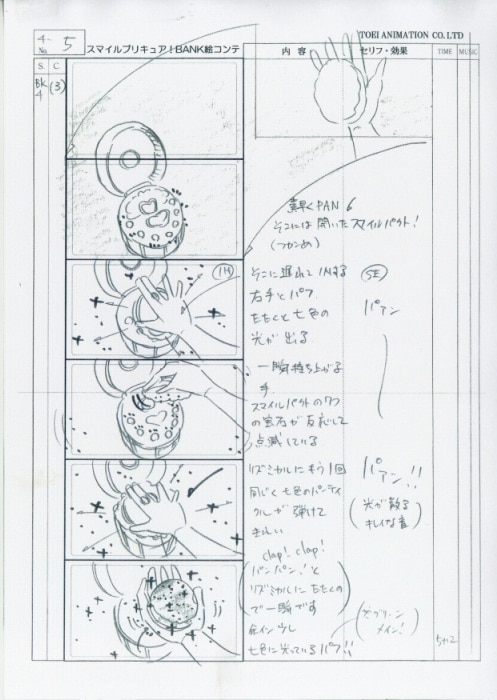 TOEI ANIMATION CO. LTD
4-
No. 5
スマイルプリキュア！BANK絵コンテ
内容
セリフ・効果
TIME
MUSIC
S.
C
BK
4
(3)
素早くPAN
そこには開いたスマイルパクト！
(つかめ)
1H
そこに遅れてINする
右手とパフ
SE
パァン
と七色の
光が出る
一瞬持ち上がる
手
スマイルパクトの7つ
の宝石が反応して
点滅している
リズミカルにもう1回
同じく七色のパーティ
クルが弾けて
きれい
パァン!!
(光が散る
キレイな音)
clap! clap!
パンパン!と
リズミカルに
で一瞬です
七色に光っているパフ!!
グリーン
メイン!